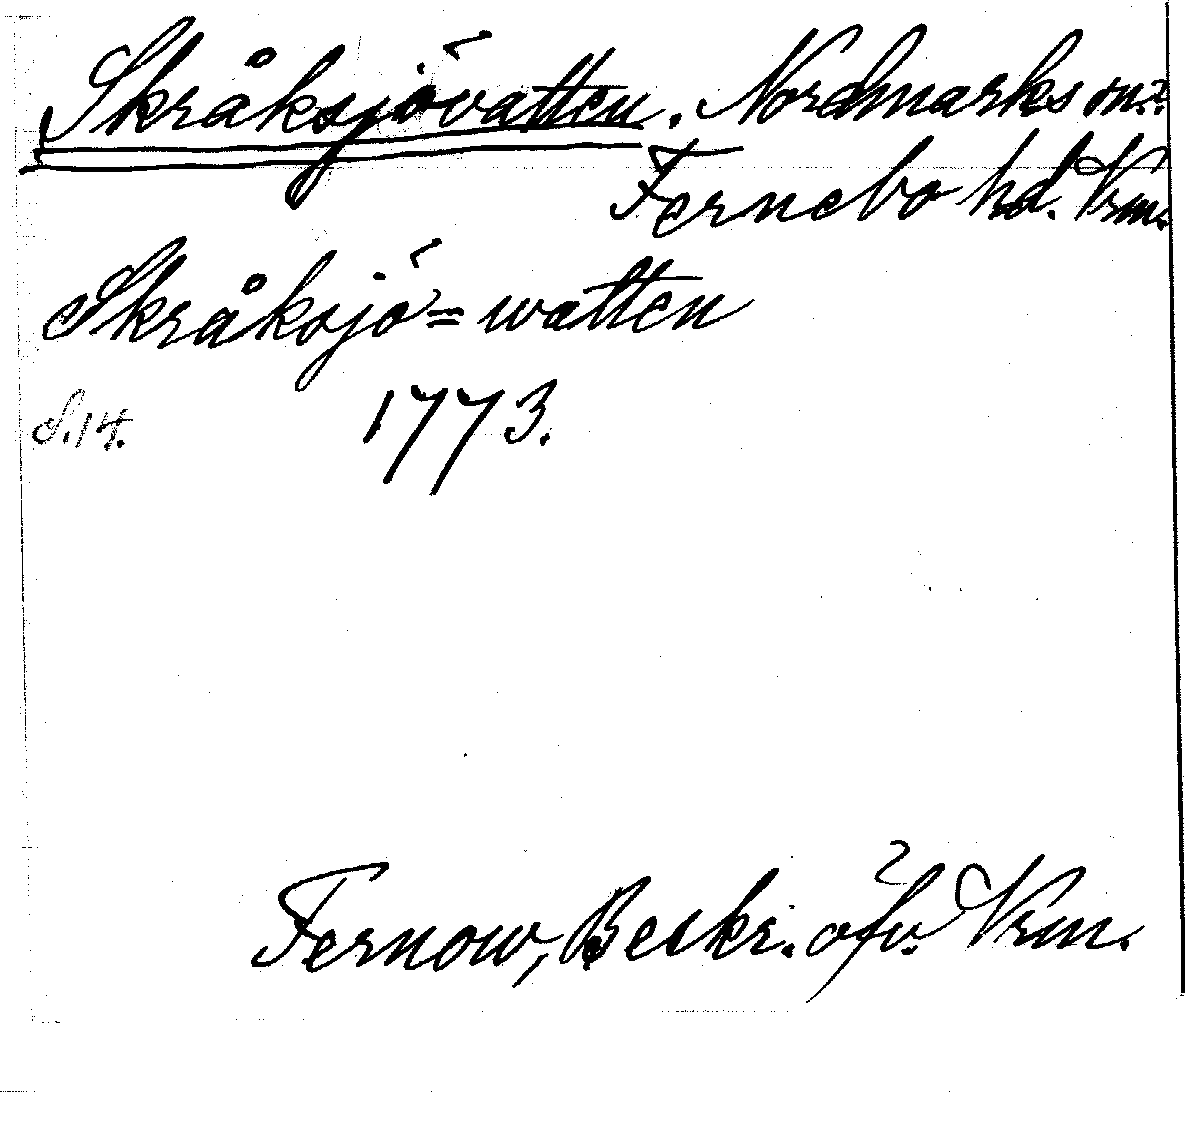 Skråksjövatten. Nordmarks sn.?
Fernebo hd. Vrm.
Skråksjö=watten
S.14. 1773.
Fernow, Beskr. öfv. Vrm.